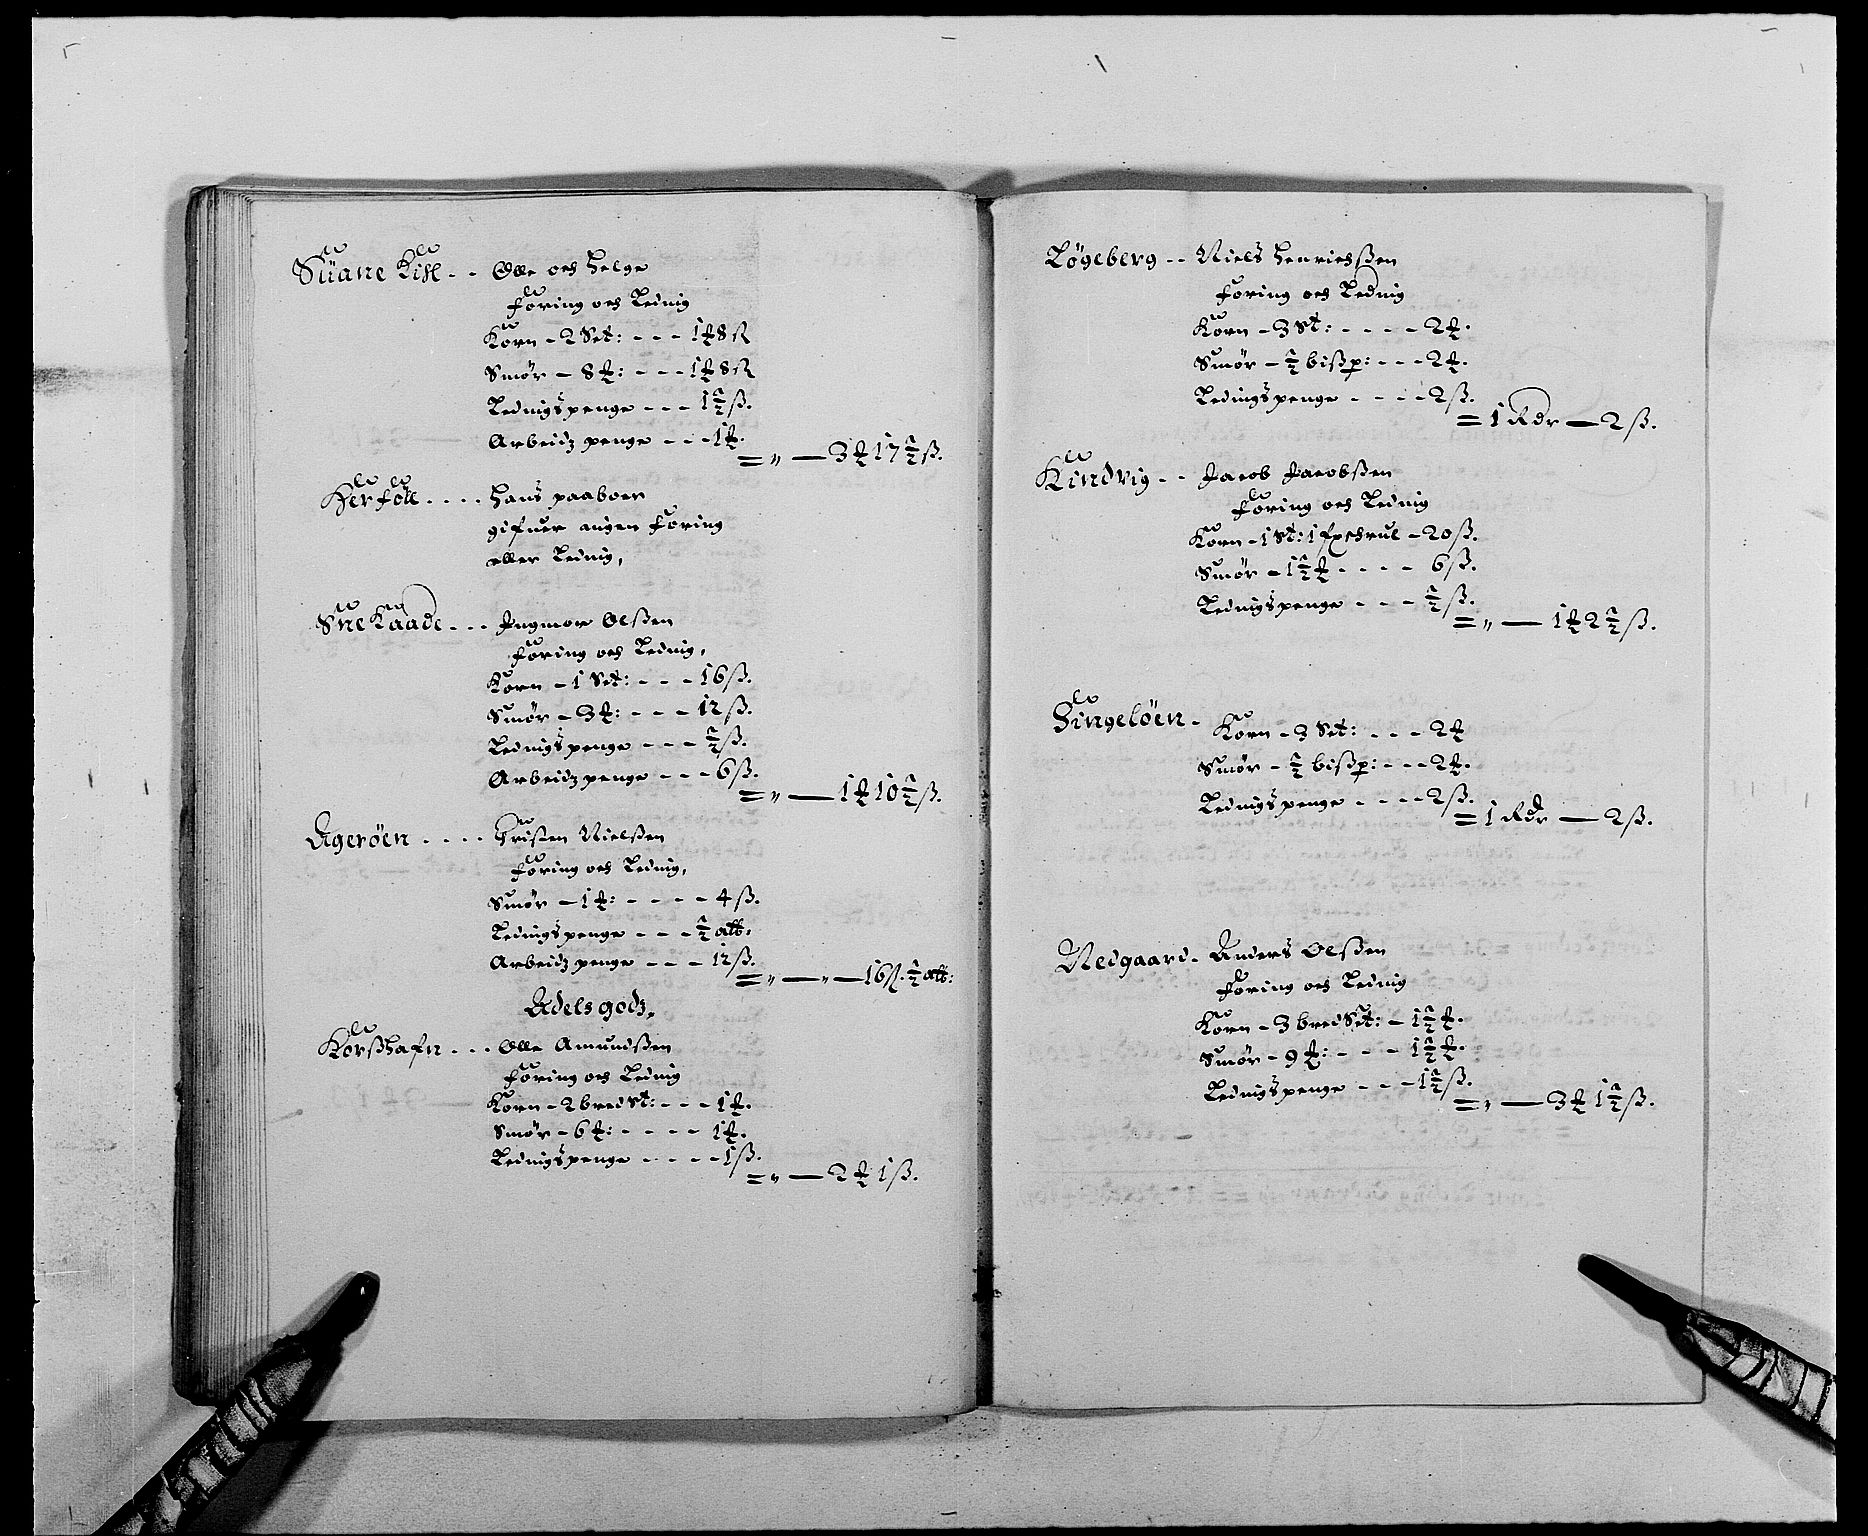 Süane Kihl - - Olle och Helge
Foring och Leding
Korn - 2 Set: - - - 1 ₰ 8 ß
Smør - 8 ₰: - - - 1 ₰ 8 ß
Ledings penge - - - 1½ ß.
Arbeidz penge - - - 1 ₰.
= „ — 3 ₰ 17½ ß.
Kerföll - - - - Hans paaboer
gifuer ingen Foring
eller Leding,
Sne Kaade - - - Ingmor Olßen
Foring och Leding,
Korn - 1 Set: - - - 16 ß.
Smør - 3 ₰: - - - 12 ß.
Ledings penge - - - ½ ß.
Arbeidz penge - - - 6 ß.
= „ — 1 ₰ 10½ ß.
Ageröen - - - - Christen Nielßen
Foring och Leding,
Smør - 1 ₰: - - - - 4 ß.
Ledings penge - - - ½ alb:
Arbeidz penge - - - 12 ß.
= „ — „ — 16 ß. ½ alb:
Adels godz,
Korßhafn - - - Olle Amundßen
Foring och Leding
Korn - 2 bred St: - - - 1 ₰.
Smør - 6 ₰: - - - - 1 ₰.
Ledings penge - - - - 1 ß.
= „ — 2 ₰ 1 ß.
Løgeberg - - Niels Henrichßen
Foring och Leding
Korn - 3 St: - - - - 2 ₰.
Smør - ½ bißp: - - - 2 ₰.
Ledings penge - - - - 2 ß.
= 1 Rdr — 2 ß.
Kindvig - - Jacob Jacobßen
Foring och Leding
Korn - 1 St: 1 - 20 ß.
Smør - 1½ ₰ - - - - 6 ß.
Ledings penge - - - ½ ß.
= „ — 1 ₰ 2½ ß.
Singelöen - Korn - 3 Set: - - - 2 ₰
Smør - ½ bißp: - - - 2 ₰.
Ledings penge - - - - 2 ß.
= 1 Rdr — 2 ß.
Nedgaard - Anders Olßen
Foring och Leding
Korn - 3 bred Set: - 1½ ₰.
Smør - 9 ₰: - - - - 1½ ₰.
Ledings penge - - - 1½ ß.
= „ — 3 ₰ 1½ ß.